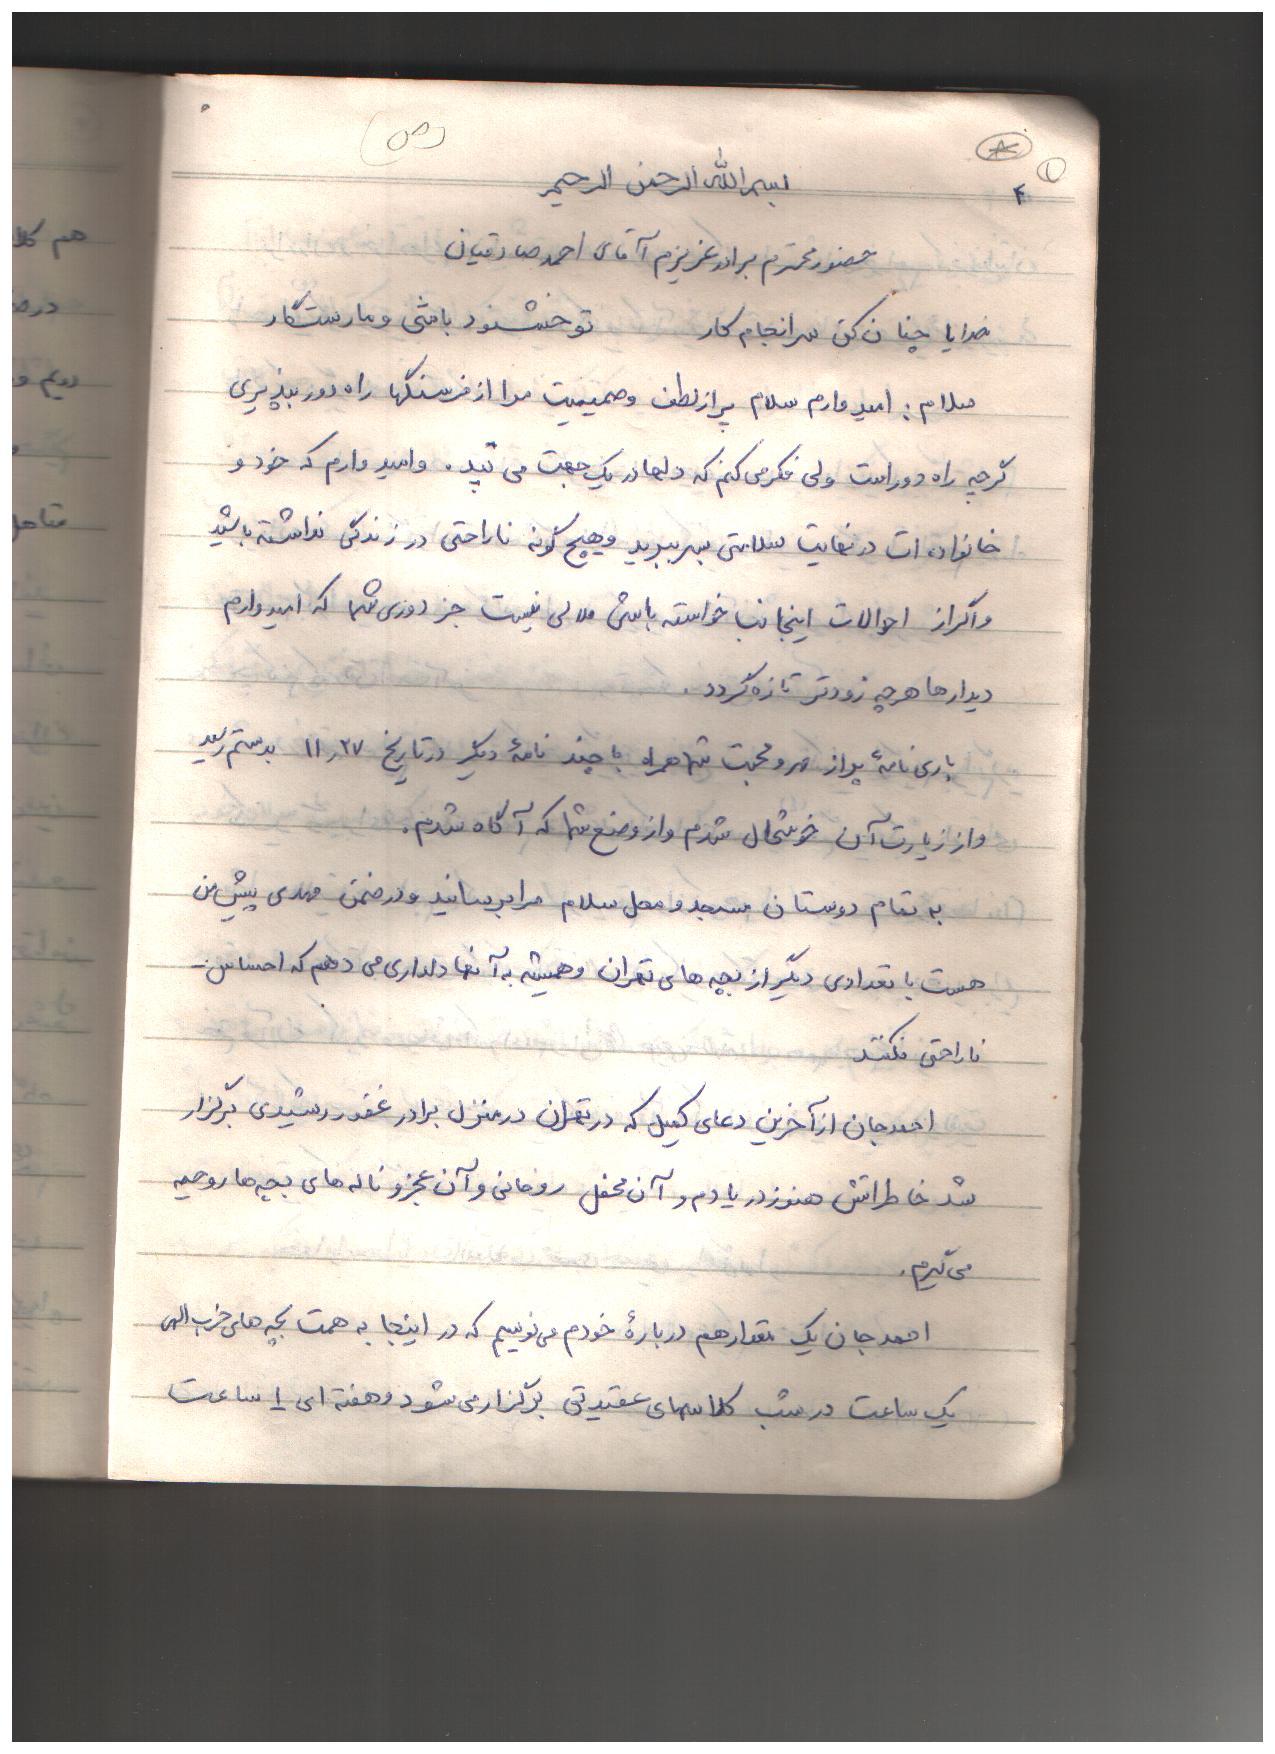 ۴
بسم الله الرحمن الرحیم
حضور محترم برادر عزیزم آقای احمد صادقیان
خدایا چنان کن سرانجام کار تو خوشنود باشی و ما رستگار
سلام: امیدوارم سلام پر از لطف و صمیمیت مرا از فرسنگها راه دور بپذیری
گرچه راه دور است ولی فکر می کنم که دلها در یک جهت می تپد. و امیدوارم که خود و
خانواده ات در نهایت سلامتی بسر ببرید و هیچ گونه ناراحتی در زندگی نداشته باشید
و اگر از احوالات اینجانب خواسته باشی ملالی نیست جز دوری شما که امیدوارم
دیدارها هر چه زودتر تازه گردد.
باری نامهٔ پر از مهر و محبت شما همراه با چند نامهٔ دیگر در تاریخ ۱۱٫۲۷ بدستم رسید
و از زیارت آن خوشحال شدم و از وضع شما که آگاه شدم.
به تمام دوستان مسجد و محل سلام مرا برسانید و در ضمن مهدی پیش من
هست با تعدادی دیگر از بچه های تهران و همیشه به آنها دلداری می دهم که احساس
ناراحتی نکنند
احمد جان از آخرین دعای کمیل که در تهران در منزل برادر غفور رشیدی برگزار
شد خاطراتش هنوز در یادم و آن محفل روحانی و آن عجز و ناله های بچه ها روحیه
می گیرم.
احمد جان یک مقدار هم دربارهٔ خودم می نویسم که در اینجا به همت بچه های حزب الهی
یک ساعت در شب کلاسهای عقیدتی برگزار می شود و هفته ای ۱ ساعت